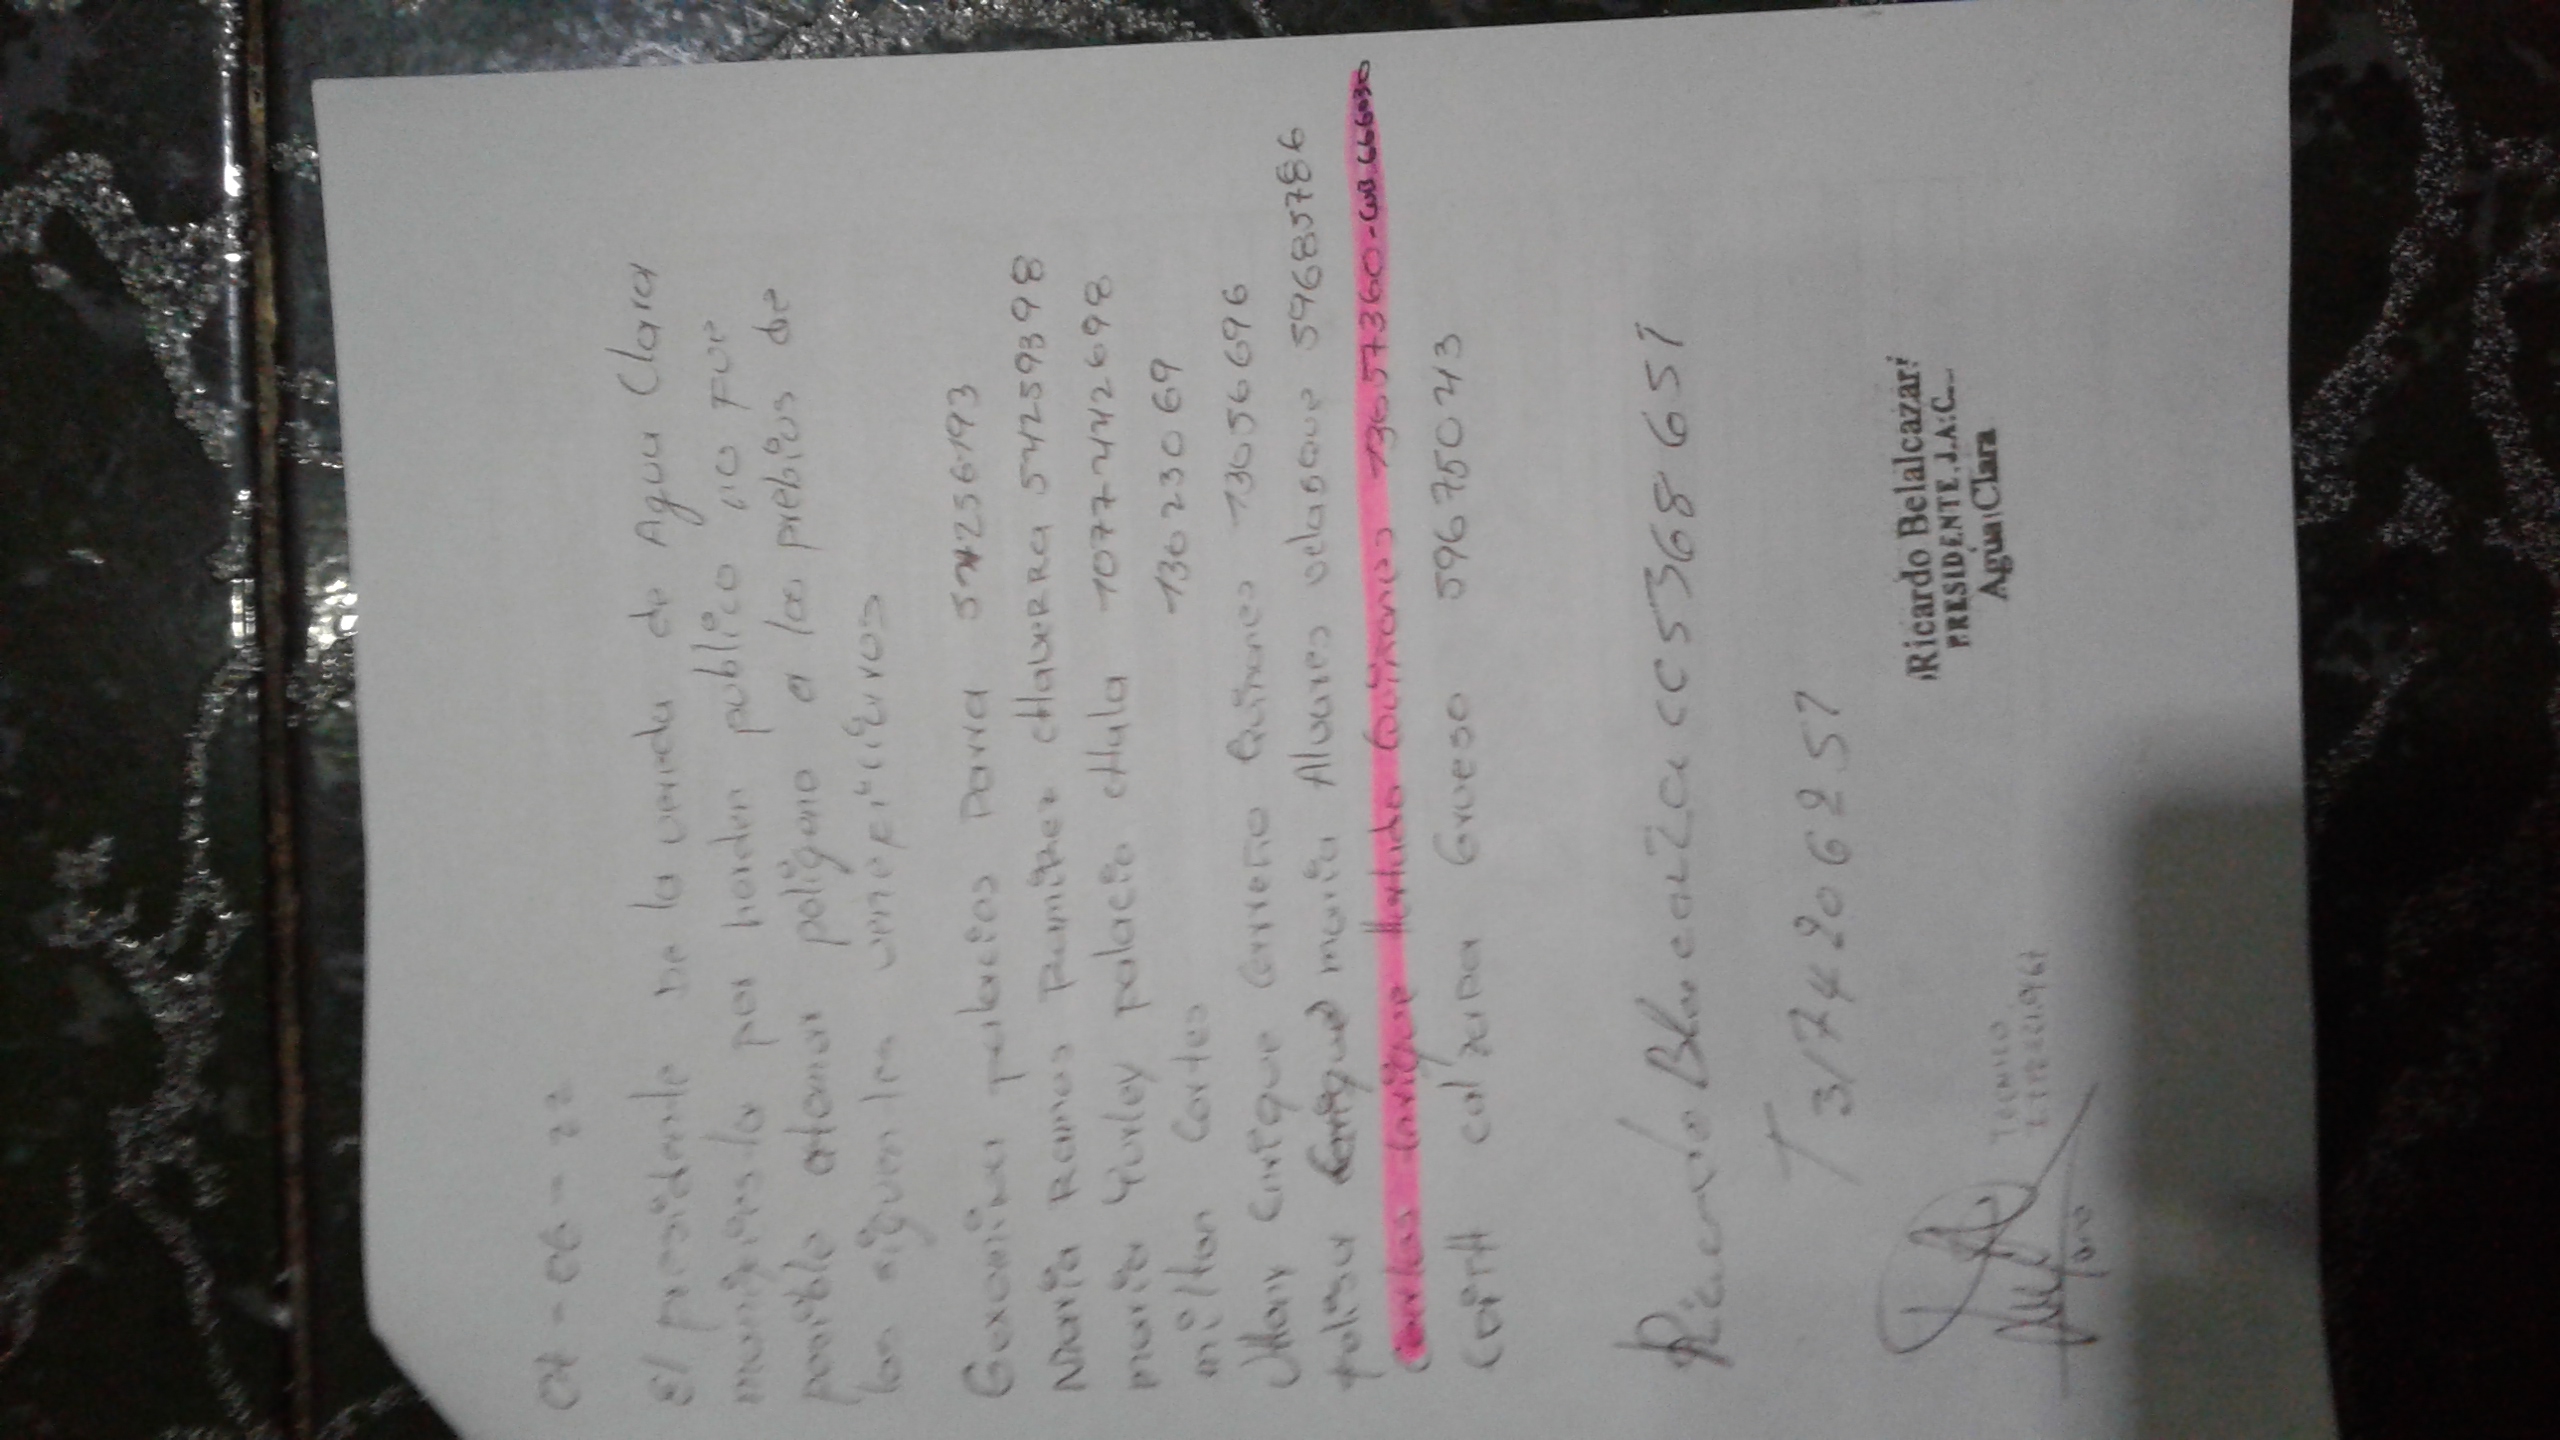 01-06-22
El presidente De la verida de Agua Clara
manifiesta por horden publico no fue
posible atomar poligano a los prebius de
los siguentes veneficiuros
Geronimu palacios Parra 54256193
Maria Ramos Ramirez cHaverra 54259398
maria Yurley palacio cHala 1077442698
milton Cortes 13023069
JHon Enrique Carreño Quinones 13056696
maria Alvares velasque 5968 5786
Carlos Enrique Hurtado Quiñones 13657360
EdiTH calzada Grueso 59675043
Ricardo Blacazar cc 5368651
T 3174206251
Ricardo Belalcazar
PRESIDENTE J.A.C.
Agua Clara